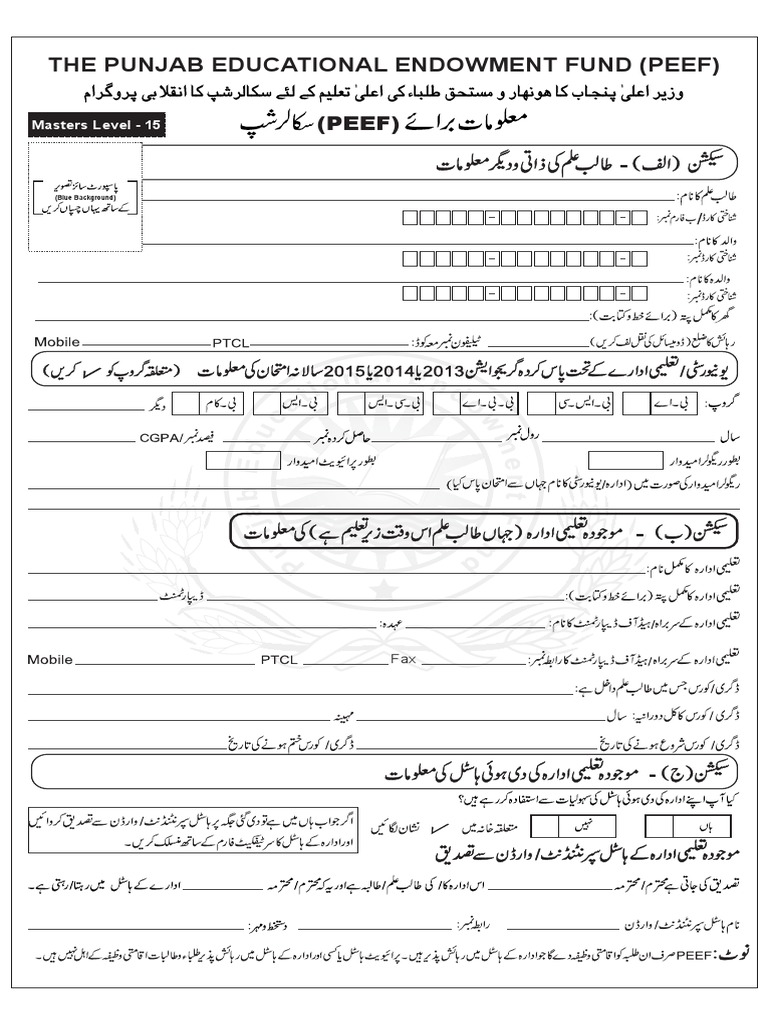 THE PUNJAB EDUCATIONAL ENDOWMENT FUND (PEEF)
وزیر اعلیٰ پنجاب کا ھونھار و مستحق طلباء کی اعلیٰ تعلیم کے لئے سکالرشپ کا انقلابی پروگرام
معلومات برائے (PEEF) سکالرشپ
Masters Level - 15
پاسپورٹ سائز تصویر
(Blue Background)
کے ساتھ یہاں چسپاں کریں
سیکشن (الف) - طالب علم کی ذاتی و دیگر معلومات
طالب علم کا نام:
شناختی کارڈ/ب فارم نمبر:
والد کا نام:
شناختی کارڈ نمبر:
والدہ کا نام:
شناختی کارڈ نمبر:
گھر کا مکمل پتہ (برائے خط و کتابت):
رہائش کا ضلع (ڈومیسائل کی نقل لف کریں) ٹیلیفون نمبر معہ کوڈ: PTCL Mobile
یونیورسٹی/تعلیمی ادارے کے تحت پاس کردہ گریجوایشن 2013 یا 2014 یا 2015 سالانہ امتحان کی معلومات (متعلقہ گروپ کو ✓ کریں)
گروپ: بی۔اے بی۔ایس۔سی بی۔بی۔اے بی۔سی۔ایس بی۔ایس بی۔کام دیگر
سال رول نمبر حاصل کردہ نمبر فیصد نمبر/CGPA
بطور ریگولر امیدوار بطور پرائیویٹ امیدوار
ریگولر امیدوار کی صورت میں (ادارہ/یونیورسٹی کا نام جہاں سے امتحان پاس کیا)
سیکشن (ب) - موجودہ تعلیمی ادارہ (جہاں طالب علم اس وقت زیر تعلیم ہے) کی معلومات
تعلیمی ادارہ کا مکمل نام:
تعلیمی ادارہ کا مکمل پتہ (برائے خط و کتابت): ڈیپارٹمنٹ
تعلیمی ادارہ کے سربراہ/ہیڈ آف ڈیپارٹمنٹ کا نام: عہدہ:
تعلیمی ادارہ کے سربراہ/ہیڈ آف ڈیپارٹمنٹ کا رابطہ نمبر: Fax PTCL Mobile
ڈگری/کورس جس میں طالب علم داخل ہے:
ڈگری/کورس کا کل دورانیہ: سال مہینہ
ڈگری/کورس شروع ہونے کی تاریخ ڈگری/کورس ختم ہونے کی تاریخ
سیکشن (ج) - موجودہ تعلیمی ادارہ کی دی ہوئی ہاسٹل کی معلومات
کیا آپ اپنے ادارہ کی دی ہوئی ہاسٹل کی سہولیات سے استفادہ کر رہے ہیں؟
ہاں نہیں متعلقہ خانہ میں ✓ نشان لگائیں
اگر جواب ہاں میں ہے تو دی گئی جگہ پر ہاسٹل سپرنٹنڈنٹ/وارڈن سے تصدیق کروائیں
اور ادارہ کے ہاسٹل کا سرٹیفکیٹ فارم کے ساتھ منسلک کریں۔
موجودہ تعلیمی ادارہ کے ہاسٹل سپرنٹنڈنٹ/وارڈن سے تصدیق
تصدیق کی جاتی ہے محترم/محترمہ اس ادارہ کا/کی طالب علم/طالبہ ہے اور یہ کہ محترم/محترمہ ادارے کے ہاسٹل میں رہتا/رہتی ہے۔
نام ہاسٹل سپرنٹنڈنٹ/وارڈن رابطہ نمبر: دستخط و مہر:
نوٹ: PEEF صرف ان طلبہ کو اقامتی وظیفہ دے گا جو ادارہ کے ہاسٹل میں رہائش پذیر ہیں۔ پرائیویٹ ہاسٹل یا کسی اور ادارہ کے ہاسٹل میں رہائش پذیر طلباء و طالبات اقامتی وظیفہ کے اہل نہیں ہیں۔